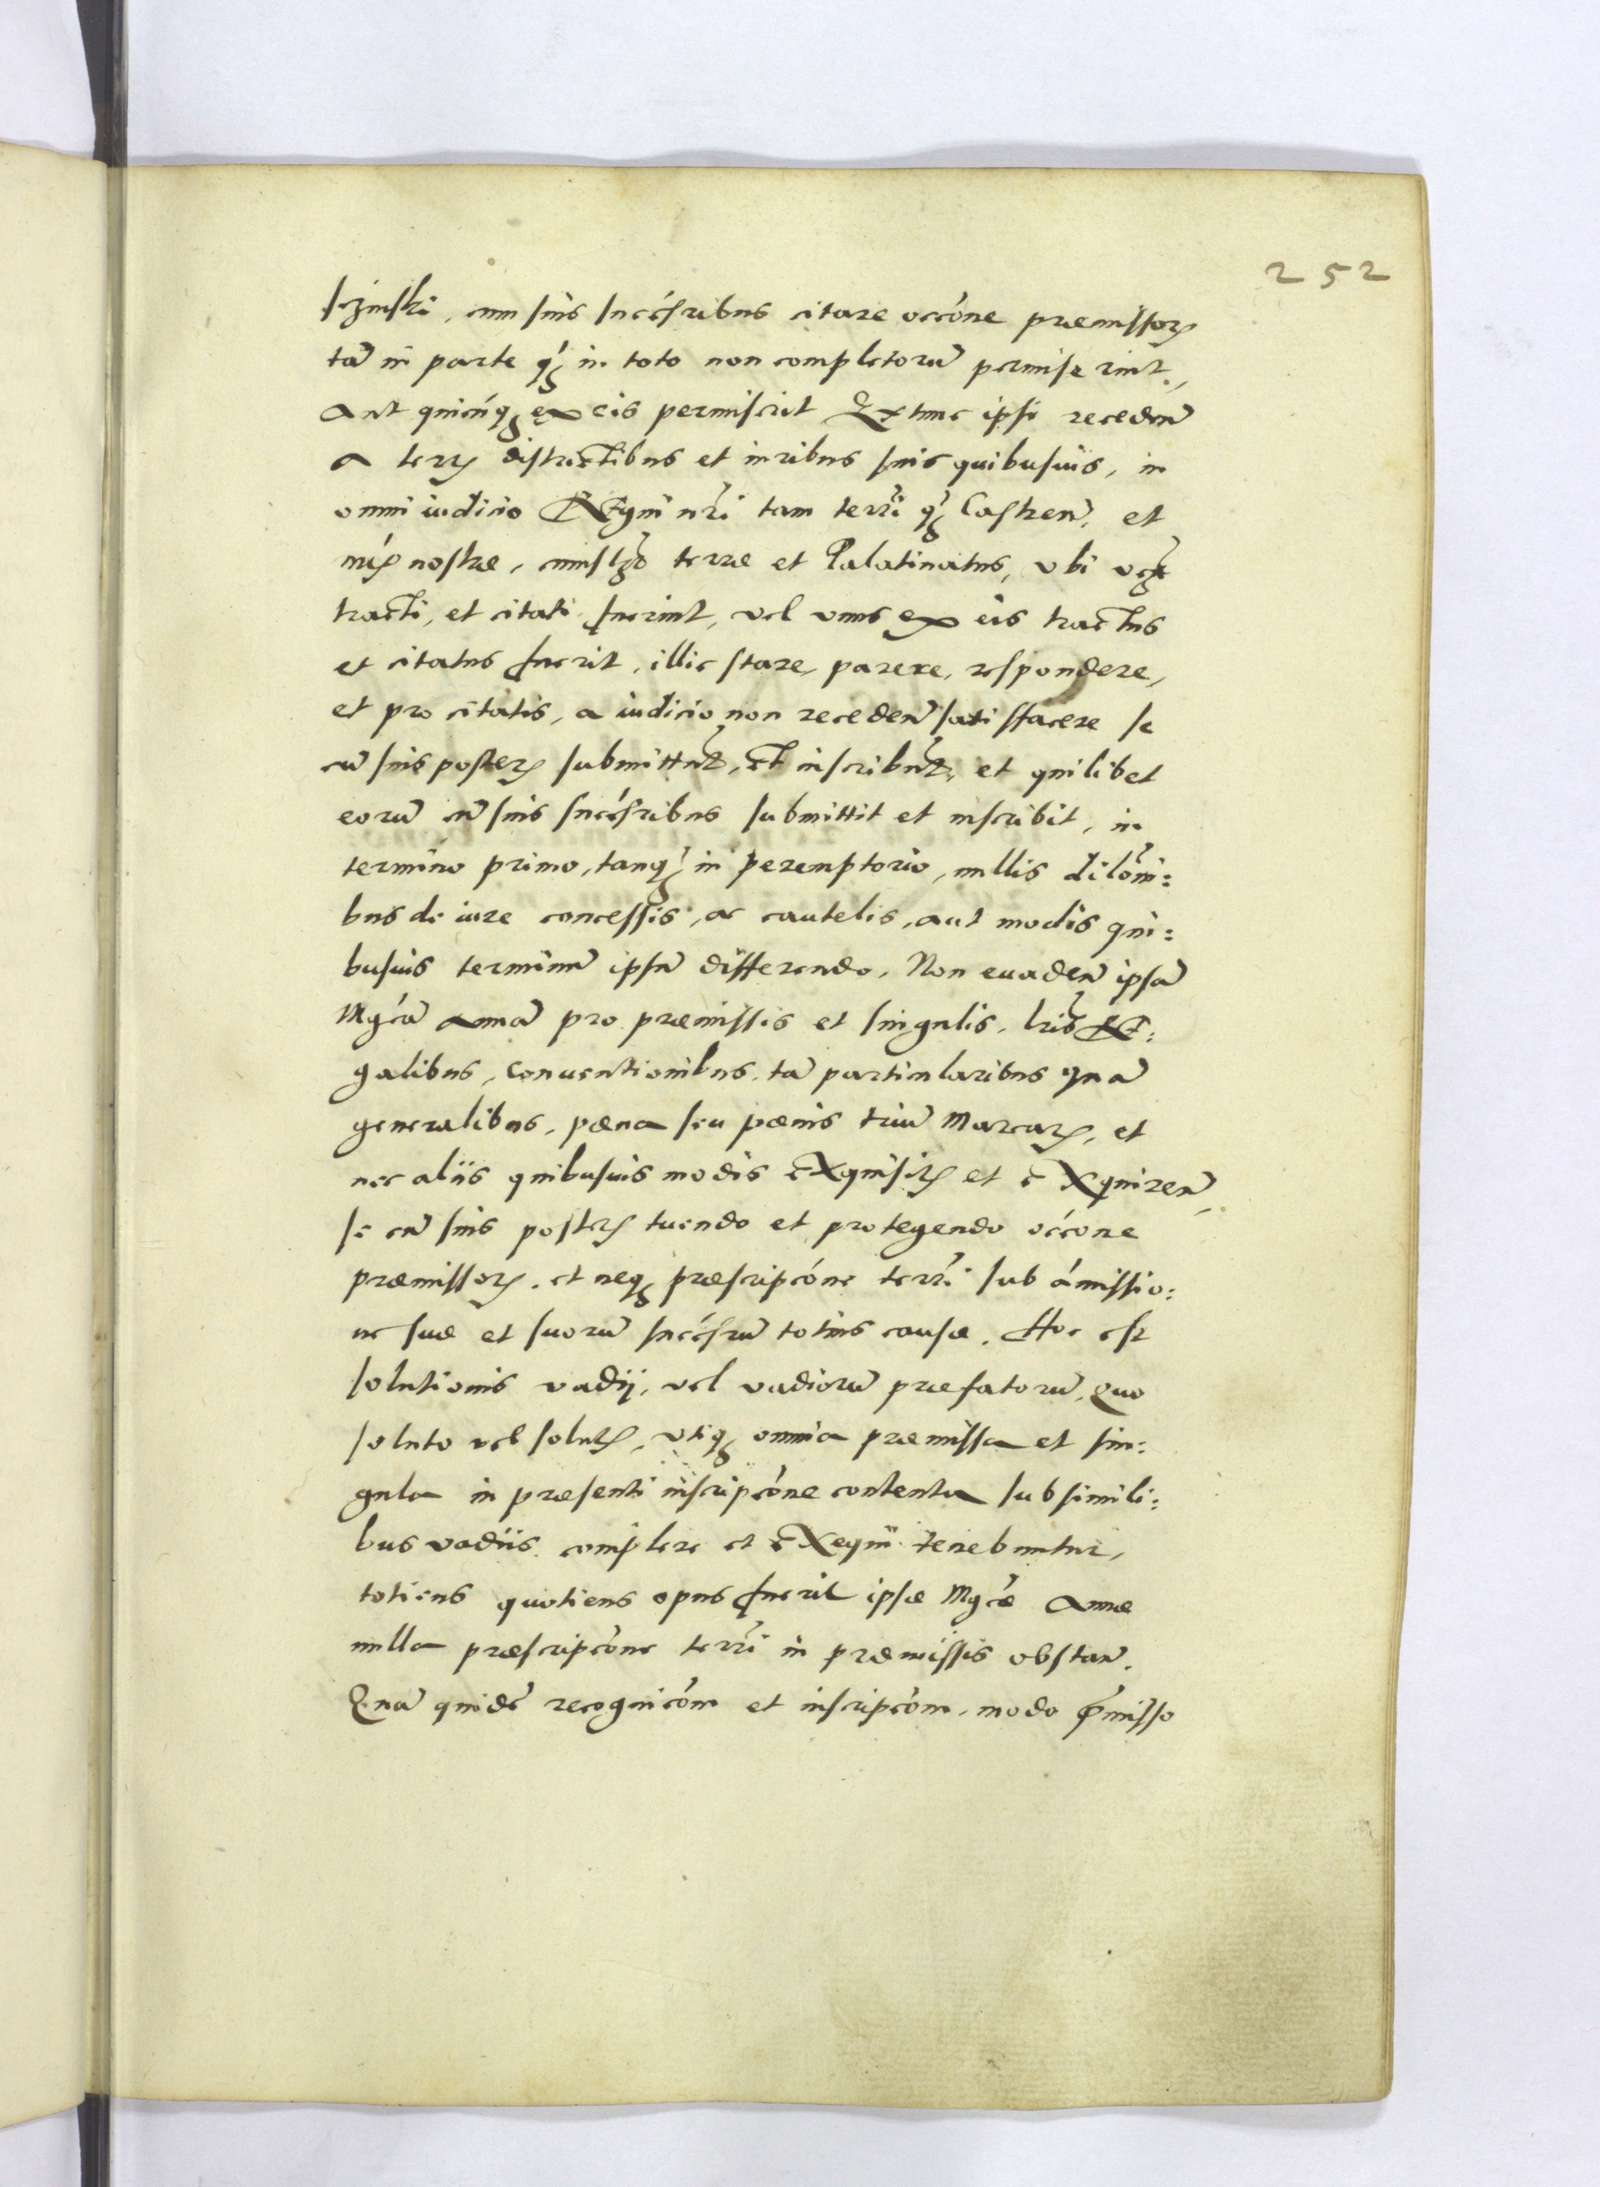 252
sczinski, cum suis succéssribus citare occóne præmissorꝝ
tā in parte qȝ in toto non completorū permiserint,
Aut quicúqȝ ex eis permiserit Extunc ipsi recedeñ
a terrꝭ districtibus et iuribus suis quibusuis, in
omni iudicio Regni nri tam terri qȝ Castreñ, et
nostræ, terræ et Palatinatus, vbi
tracti, et citati fuerint, vel vnus ex eis tractus
et citatus fuerit, illic stare, parere, respondere,
et pro citatis, a iudicio non recedeñ satisfacere se
cū suis posterꝭ submittut, et inscribut, et quilibet
eorū cū suis succésribus submittit et inscribit, in
termino primo, tanqȝ in peremptorio, nullis dilóni:
bus de iure concessis, ac cautelis, aut modis qui:
busuis terminū ipsū differendo, Non euadeñ ipsā
Mgcā Annā pro præmissis et singulis, lris Re:
galibus, conuentionibus, tā particularibus quā
generalibus, pæna seu pænis triū Marcarꝝ, et
nec aliis quibusuis modis exquisitꝭ et exquireñ,
se cū suis posterꝭ tuendo et protegendo occone
præmissorꝝ, et neqȝ præscripcóne terri sub ámissio:
ne suæ et suorū succésrū totius causæ. Hoc est
solutionis vadij, vel vadiorū præfatorū, Quo
soluto vel solutꝭ, vtiqȝ omnia præmissa et sin:
gula in præsenti inscripcóne contenta sub simili:
bus vadiis complere et exequi tenebuntur,
totiens quotiens opus fuerit ipsæ Mgcæ Annæ
nulla præscripcóne terri in præmissis obstañ.
Quā quidē recognicóm et inscripcóm, modo p̄misso